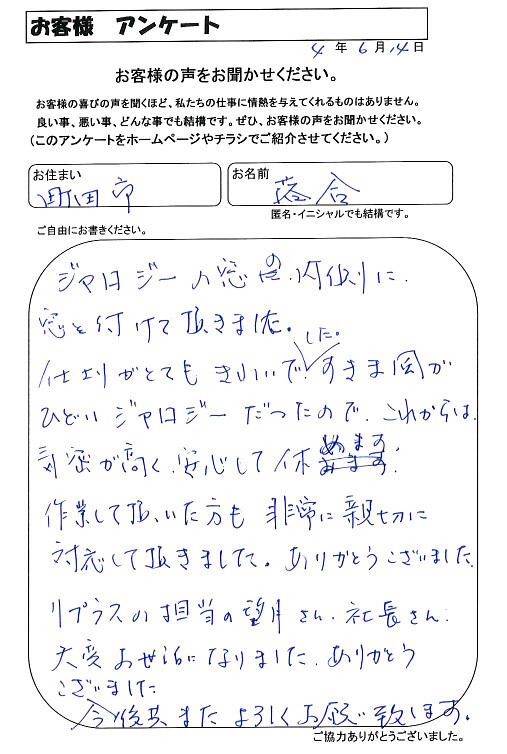 お客様 アンケート
4 年 6 月 14 日
お客様の声をお聞かせください。
お客様の喜びの声を聞くほど、私たちの仕事に情熱を与えてくれるものはありません。
良い事、悪い事、どんな事でも結構です。ぜひ、お客様の声をお聞かせください。
(このアンケートをホームページやチラシでご紹介させてください。)
お住まい
町田市
お名前
落合
匿名・イニシャルでも結構です。
ご自由にお書きください。
ジャロジーの窓の内側に
窓を付けて頂きました。
仕上りがとてもきれいでした。すきま風が
ひどいジャロジーだったので、これからは、
気密が高く、安心して休めます。
作業して頂いた方も非常に親切に
対応して頂きました。ありがとうございました。
リプラスの担当の望月さん、社長さん、
大変お世話になりました。ありがとう
ございました
今後共またよろしくお願い致します。
ご協力ありがとうございました。